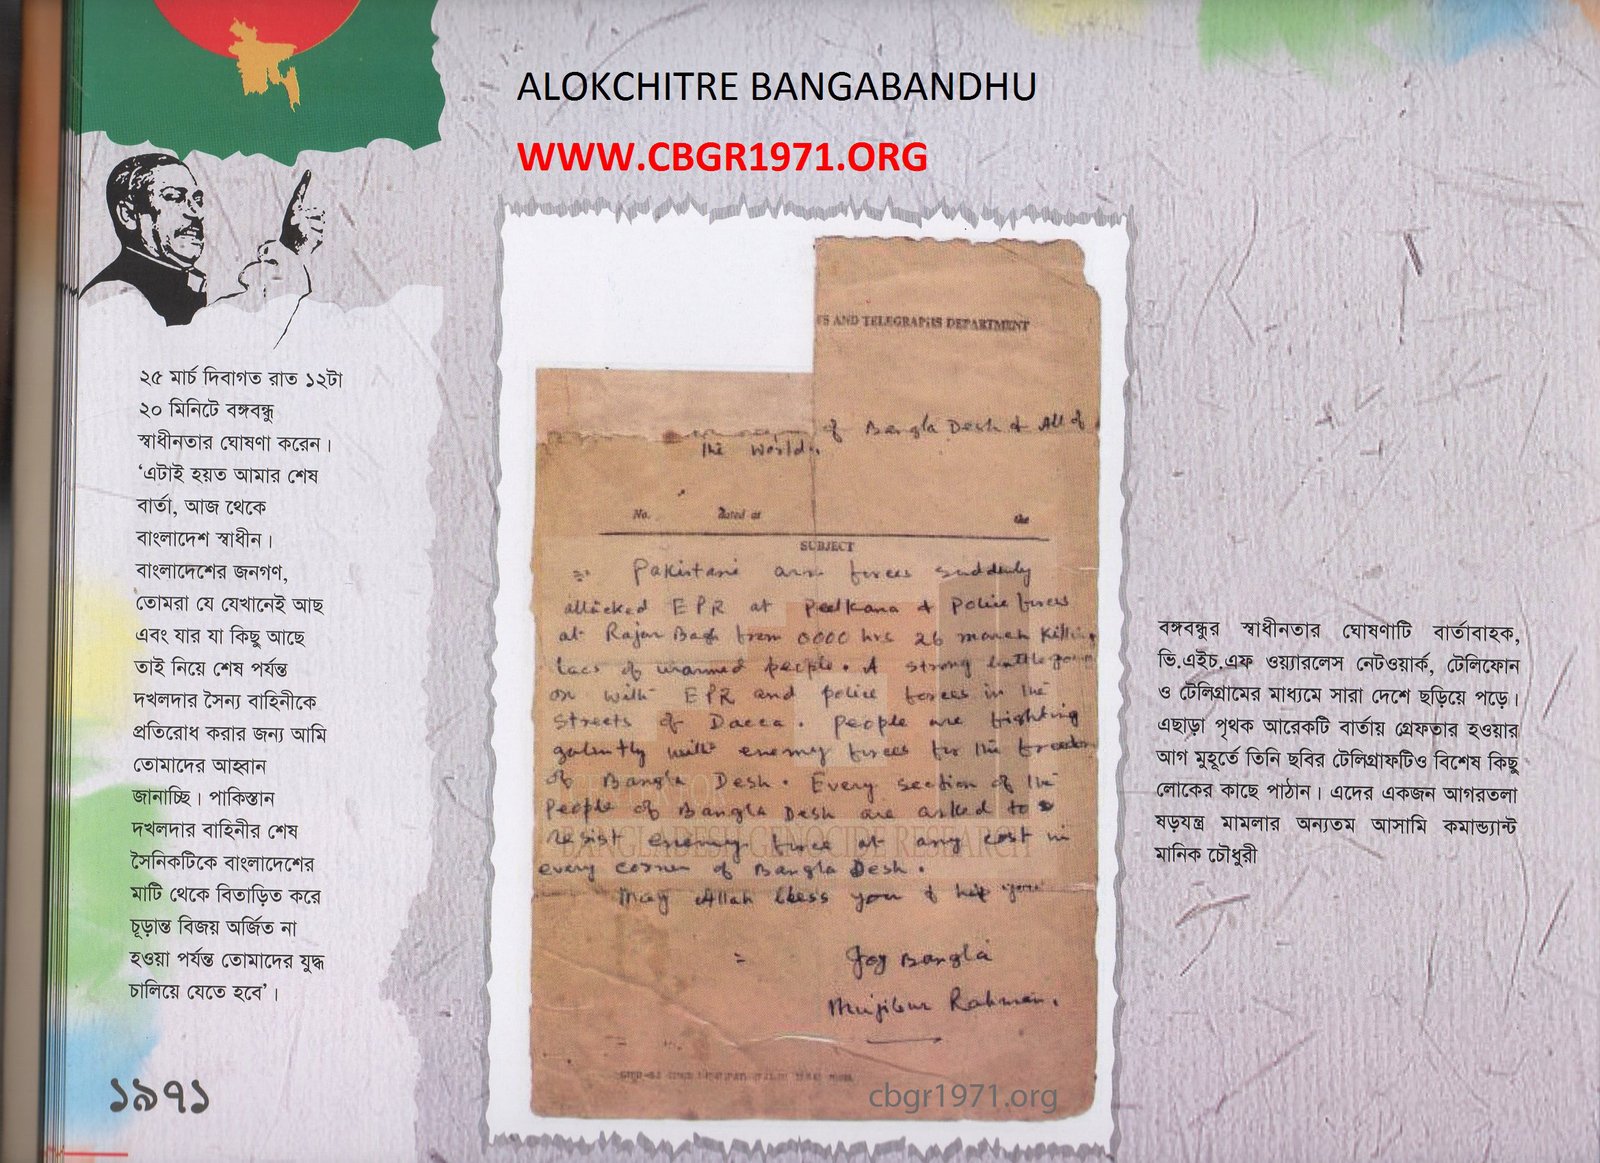 ALOKCHITRE BANGABANDHU
WWW.CBGR1971.ORG
২৫ মার্চ দিবাগত রাত ১২টা
২০ মিনিটে বঙ্গবন্ধু
স্বাধীনতার ঘোষণা করেন।
‘এটাই হয়ত আমার শেষ
বার্তা, আজ থেকে
বাংলাদেশ স্বাধীন।
বাংলাদেশের জনগণ,
তোমরা যে যেখানেই আছ
এবং যার যা কিছু আছে
তাই নিয়ে শেষ পর্যন্ত
দখলদার সৈন্য বাহিনীকে
প্রতিরোধ করার জন্য আমি
তোমাদের আহ্বান
জানাচ্ছি। পাকিস্তান
দখলদার বাহিনীর শেষ
সৈনিকটিকে বাংলাদেশের
মাটি থেকে বিতাড়িত করে
চূড়ান্ত বিজয় অর্জিত না
হওয়া পর্যন্ত তোমাদের যুদ্ধ
চালিয়ে যেতে হবে’।
১৯৭১
TS AND TELEGRAPHS DEPARTMENT
of Bangla Desh & All of
the world.
No. Dated at the
SUBJECT
Pakistani arm forces suddenly
attacked EPR at Peelkana & Police forces
at Rajar Bagh from 0000 hrs 26 march killing
lacs of unarmed people. A strong battle going
on with EPR and police forces in the
streets of Dacca. People are fighting
galantly with enemy forces for the freedom
of Bangla Desh. Every section of the
People of Bangla Desh are asked to
resist enemy force at any cost in
every corner of Bangla Desh.
May Allah bless you & help you
Joy Bangla
Mujibur Rahman.
BANGLADESH GENOCIDE RESEARCH
cbgr1971.org
বঙ্গবন্ধুর স্বাধীনতার ঘোষণাটি বার্তাবাহক,
ভি.এইচ.এফ ওয়্যারলেস নেটওয়ার্ক, টেলিফোন
ও টেলিগ্রামের মাধ্যমে সারা দেশে ছড়িয়ে পড়ে।
এছাড়া পৃথক আরেকটি বার্তায় গ্রেফতার হওয়ার
আগ মুহূর্তে তিনি ছবির টেলিগ্রাফটিও বিশেষ কিছু
লোকের কাছে পাঠান। এদের একজন আগরতলা
ষড়যন্ত্র মামলার অন্যতম আসামি কমান্ড্যান্ট
মানিক চৌধুরী